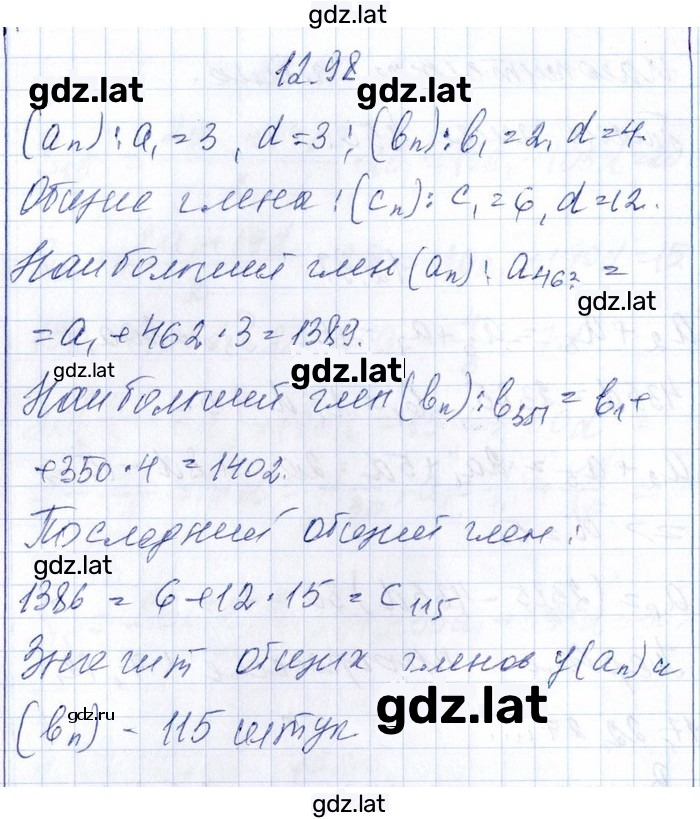 gdz.lat
12.98
gdz.lat gdz.lat
(aₙ): a₁ = 3, d = 3; (bₙ): b₁ = 2, d = 4.
Общие члены: (cₙ): c₁ = 6, d = 12.
Наибольший член (aₙ): a₄₆₃ =
gdz.lat
= a₁ + 462 · 3 = 1389.
gdz.lat gdz.lat
Наибольший член (bₙ): b₃₅₁ = b₁ +
+ 350 · 4 = 1402.
Последний общий член:
gdz.lat
1386 = 6 + 12 · 15 = c₁₁₅
Значит общих членов у (aₙ) и
gdz.ru gdz.lat
(bₙ) - 115 штук
gdz.lat